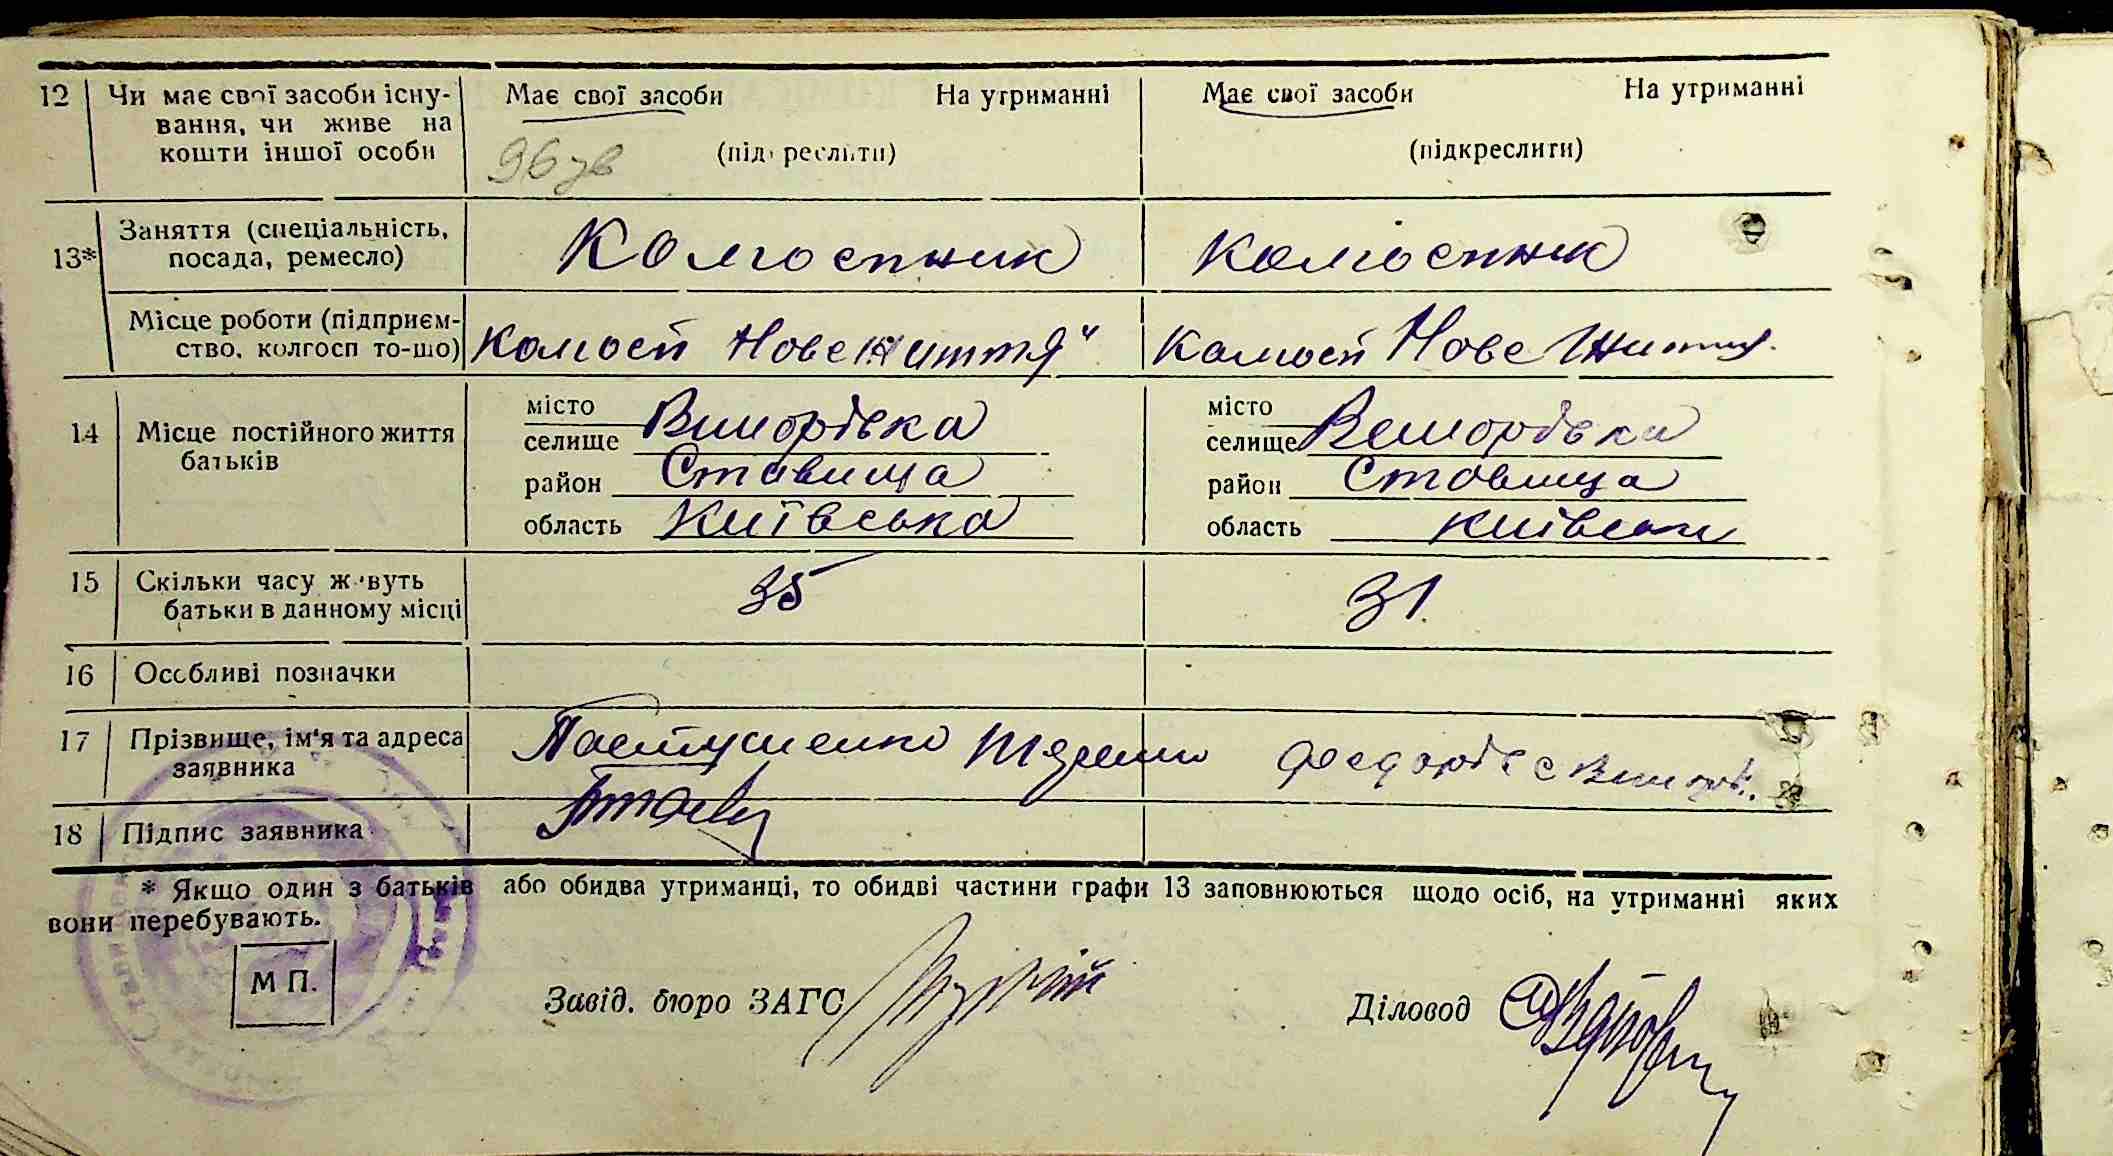 12 Чи має свої засоби існу- Має свої засоби На утриманні Має свої засоби На утриманні
вання, чи живе на
кошти іншої особи (підкреслити) (підкреслити)
13* Заняття (спеціальність,
посада, ремесло) Колгоспник Колгоспник
Місце роботи (підприєм-
ство, колгосп то-що) Колгосп Нове життя" Колгосп Нове Життя.
14 Місце постійного життя
батьків
місто місто
селище Винорівка селище
район Ставища район Ставища
область Київська область Київська
15 Скільки часу живуть
батьки в данному місці 35 31.
16 Особливі позначки
17 Прізвище, ім'я та адреса
заявника
18 Підпис заявника
* Якщо один з батьків або обидва утриманці, то обидві частини графи 13 заповнюються щодо осіб, на утриманні яких
вони перебувають.
М П.
Завід. бюро ЗАГС Діловод